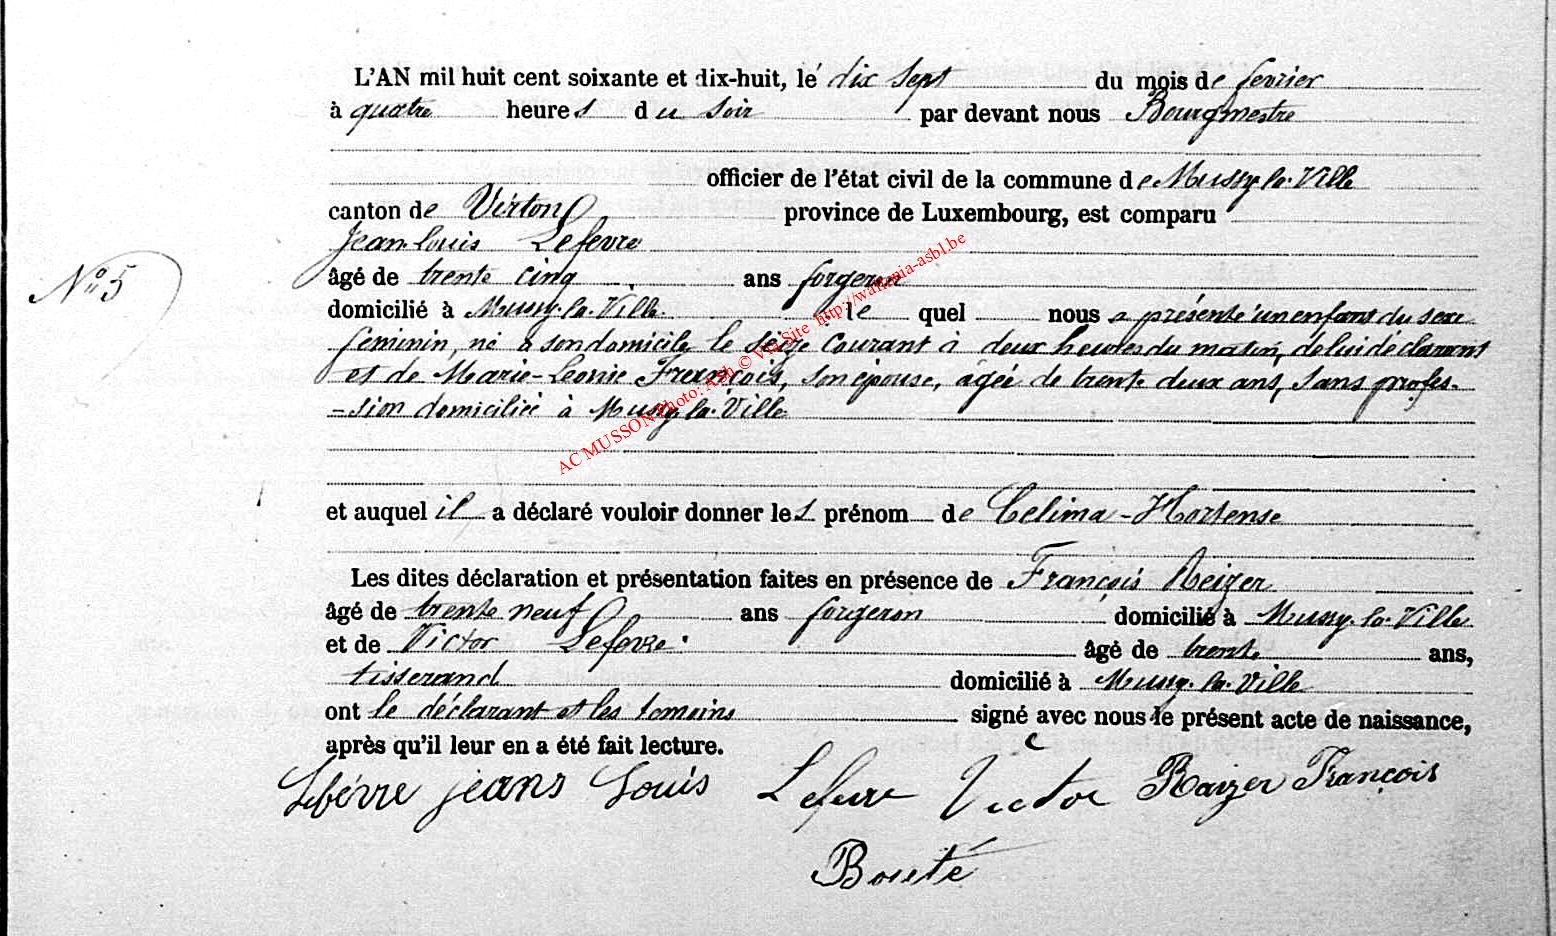 L'AN mil huit cent soixante et dix-huit, le dix sept du mois de fevrier
à quatre heures du soir par devant nous Bourgmestre
officier de l'état civil de la commune de Mussy-la-Ville
canton de Virton province de Luxembourg, est comparu
Jean Louis Lefevre
Nº 5
âgé de trente cinq ans forgeron
domicilié à Mussy-la-Ville. le quel nous a présenté un enfant du sexe
féminin, né à son domicile, le seize courant à deux heures du matin, de lui déclarant
et de Marie-Leonie François, son épouse, agée de trente deux ans, sans profes-
-sion domiciliée à Mussy-la-Ville
AC MUSSON Photo: ASh © Via Site http://wallonia-asbl.be
et auquel il a déclaré vouloir donner les prénom de Célima-Hortense
Les dites déclaration et présentation faites en présence de François Reizer
âgé de trente neuf ans forgeron domicilié à Mussy-la-Ville
et de Victor Lefevre âgé de trente ans,
tisserand domicilié à Mussy-la-Ville
ont le déclarant et les temoins signé avec nous le présent acte de naissance,
après qu'il leur en a été fait lecture.
Lefévre jeans Louis Lefevre Victor Raizer François
Bouté